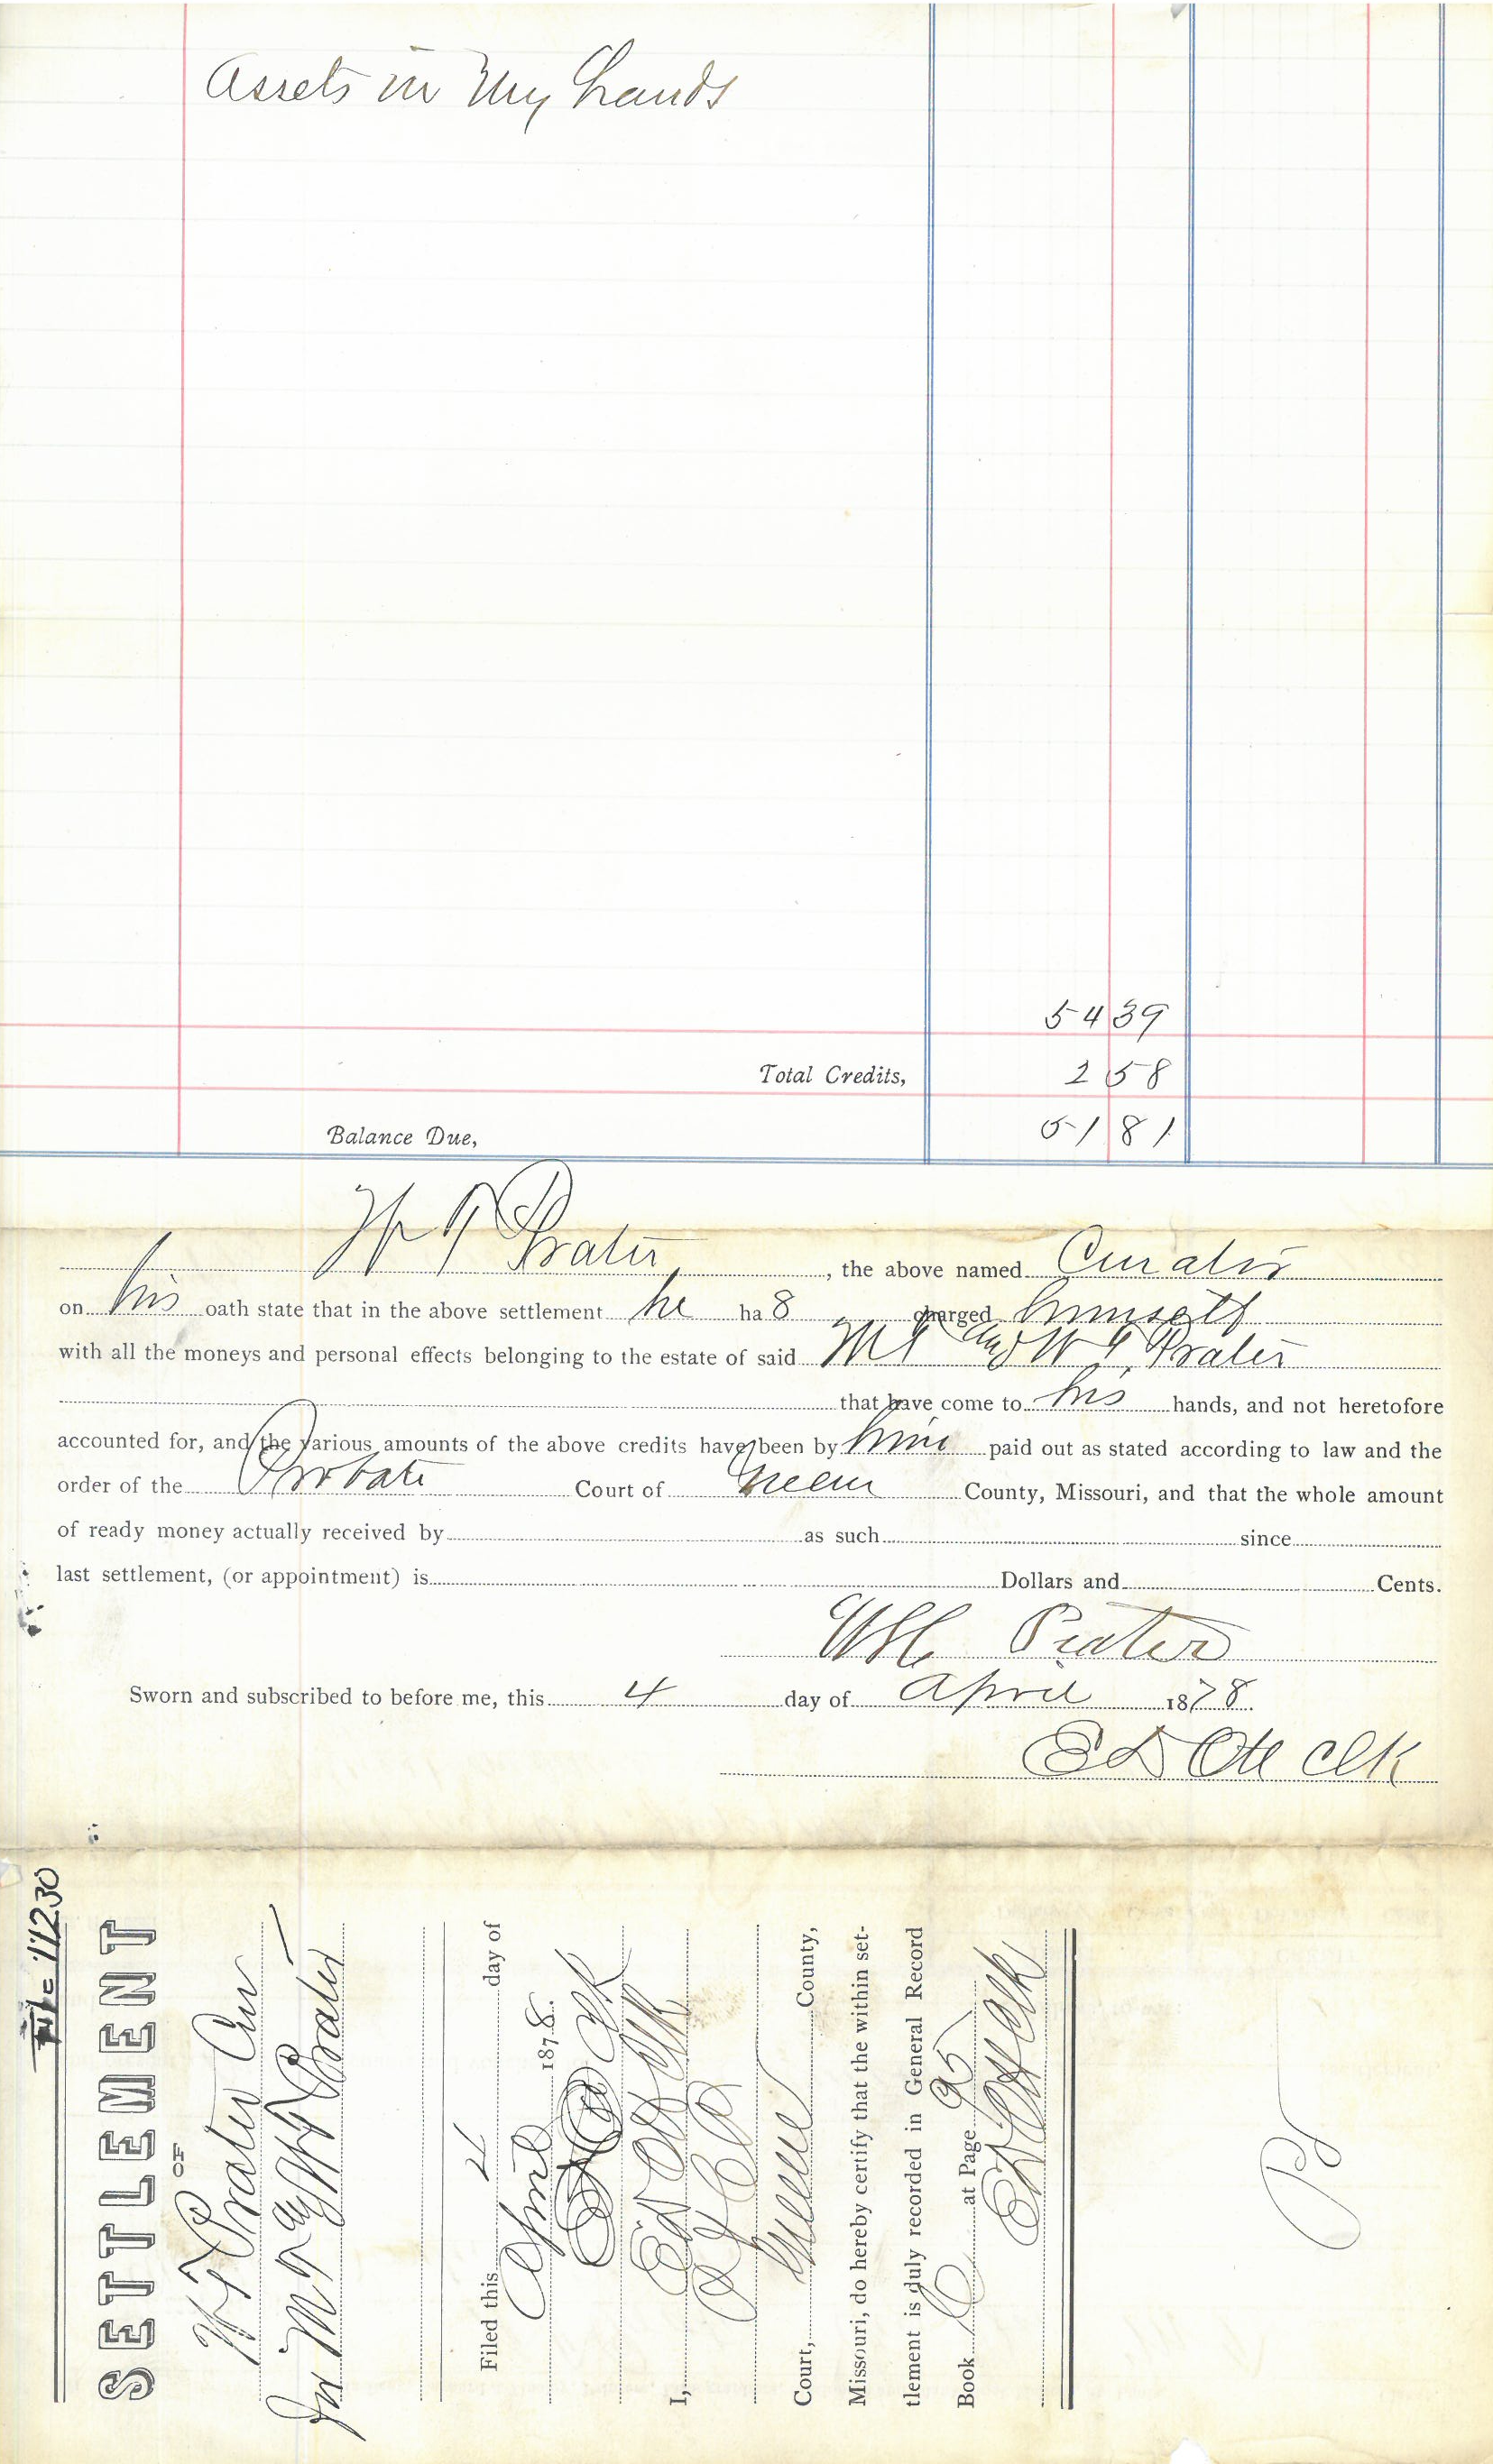 Assets in My hands
54 39
Total Credits, 2 58
Balance Due, 51 81
Prater, the above named Curator
on his oath state that in the above settlement he ha s charged himself
with all the moneys and personal effects belonging to the estate of said M T and W T Prater
that have come to his hands, and not heretofore
accounted for, and the various amounts of the above credits have been by him paid out as stated according to law and the
order of the Probate Court of Green County, Missouri, and that the whole amount
of ready money actually received by as such since
last settlement, (or appointment) is Dollars and Cents.
Prater
Sworn and subscribed to before me, this 4 day of April 1878.
E D Ott Clk
File 11230
SETTLEMENT
OF
Prater Cur
M T and Prater
Filed this 4 day of
April 1878.
E D Ott Clk
I, E D Ott Clk
Court, Greene County,
Missouri, do hereby certify that the within set-
tlement is duly recorded in General Record
Book at Page 95
E D Ott Clk